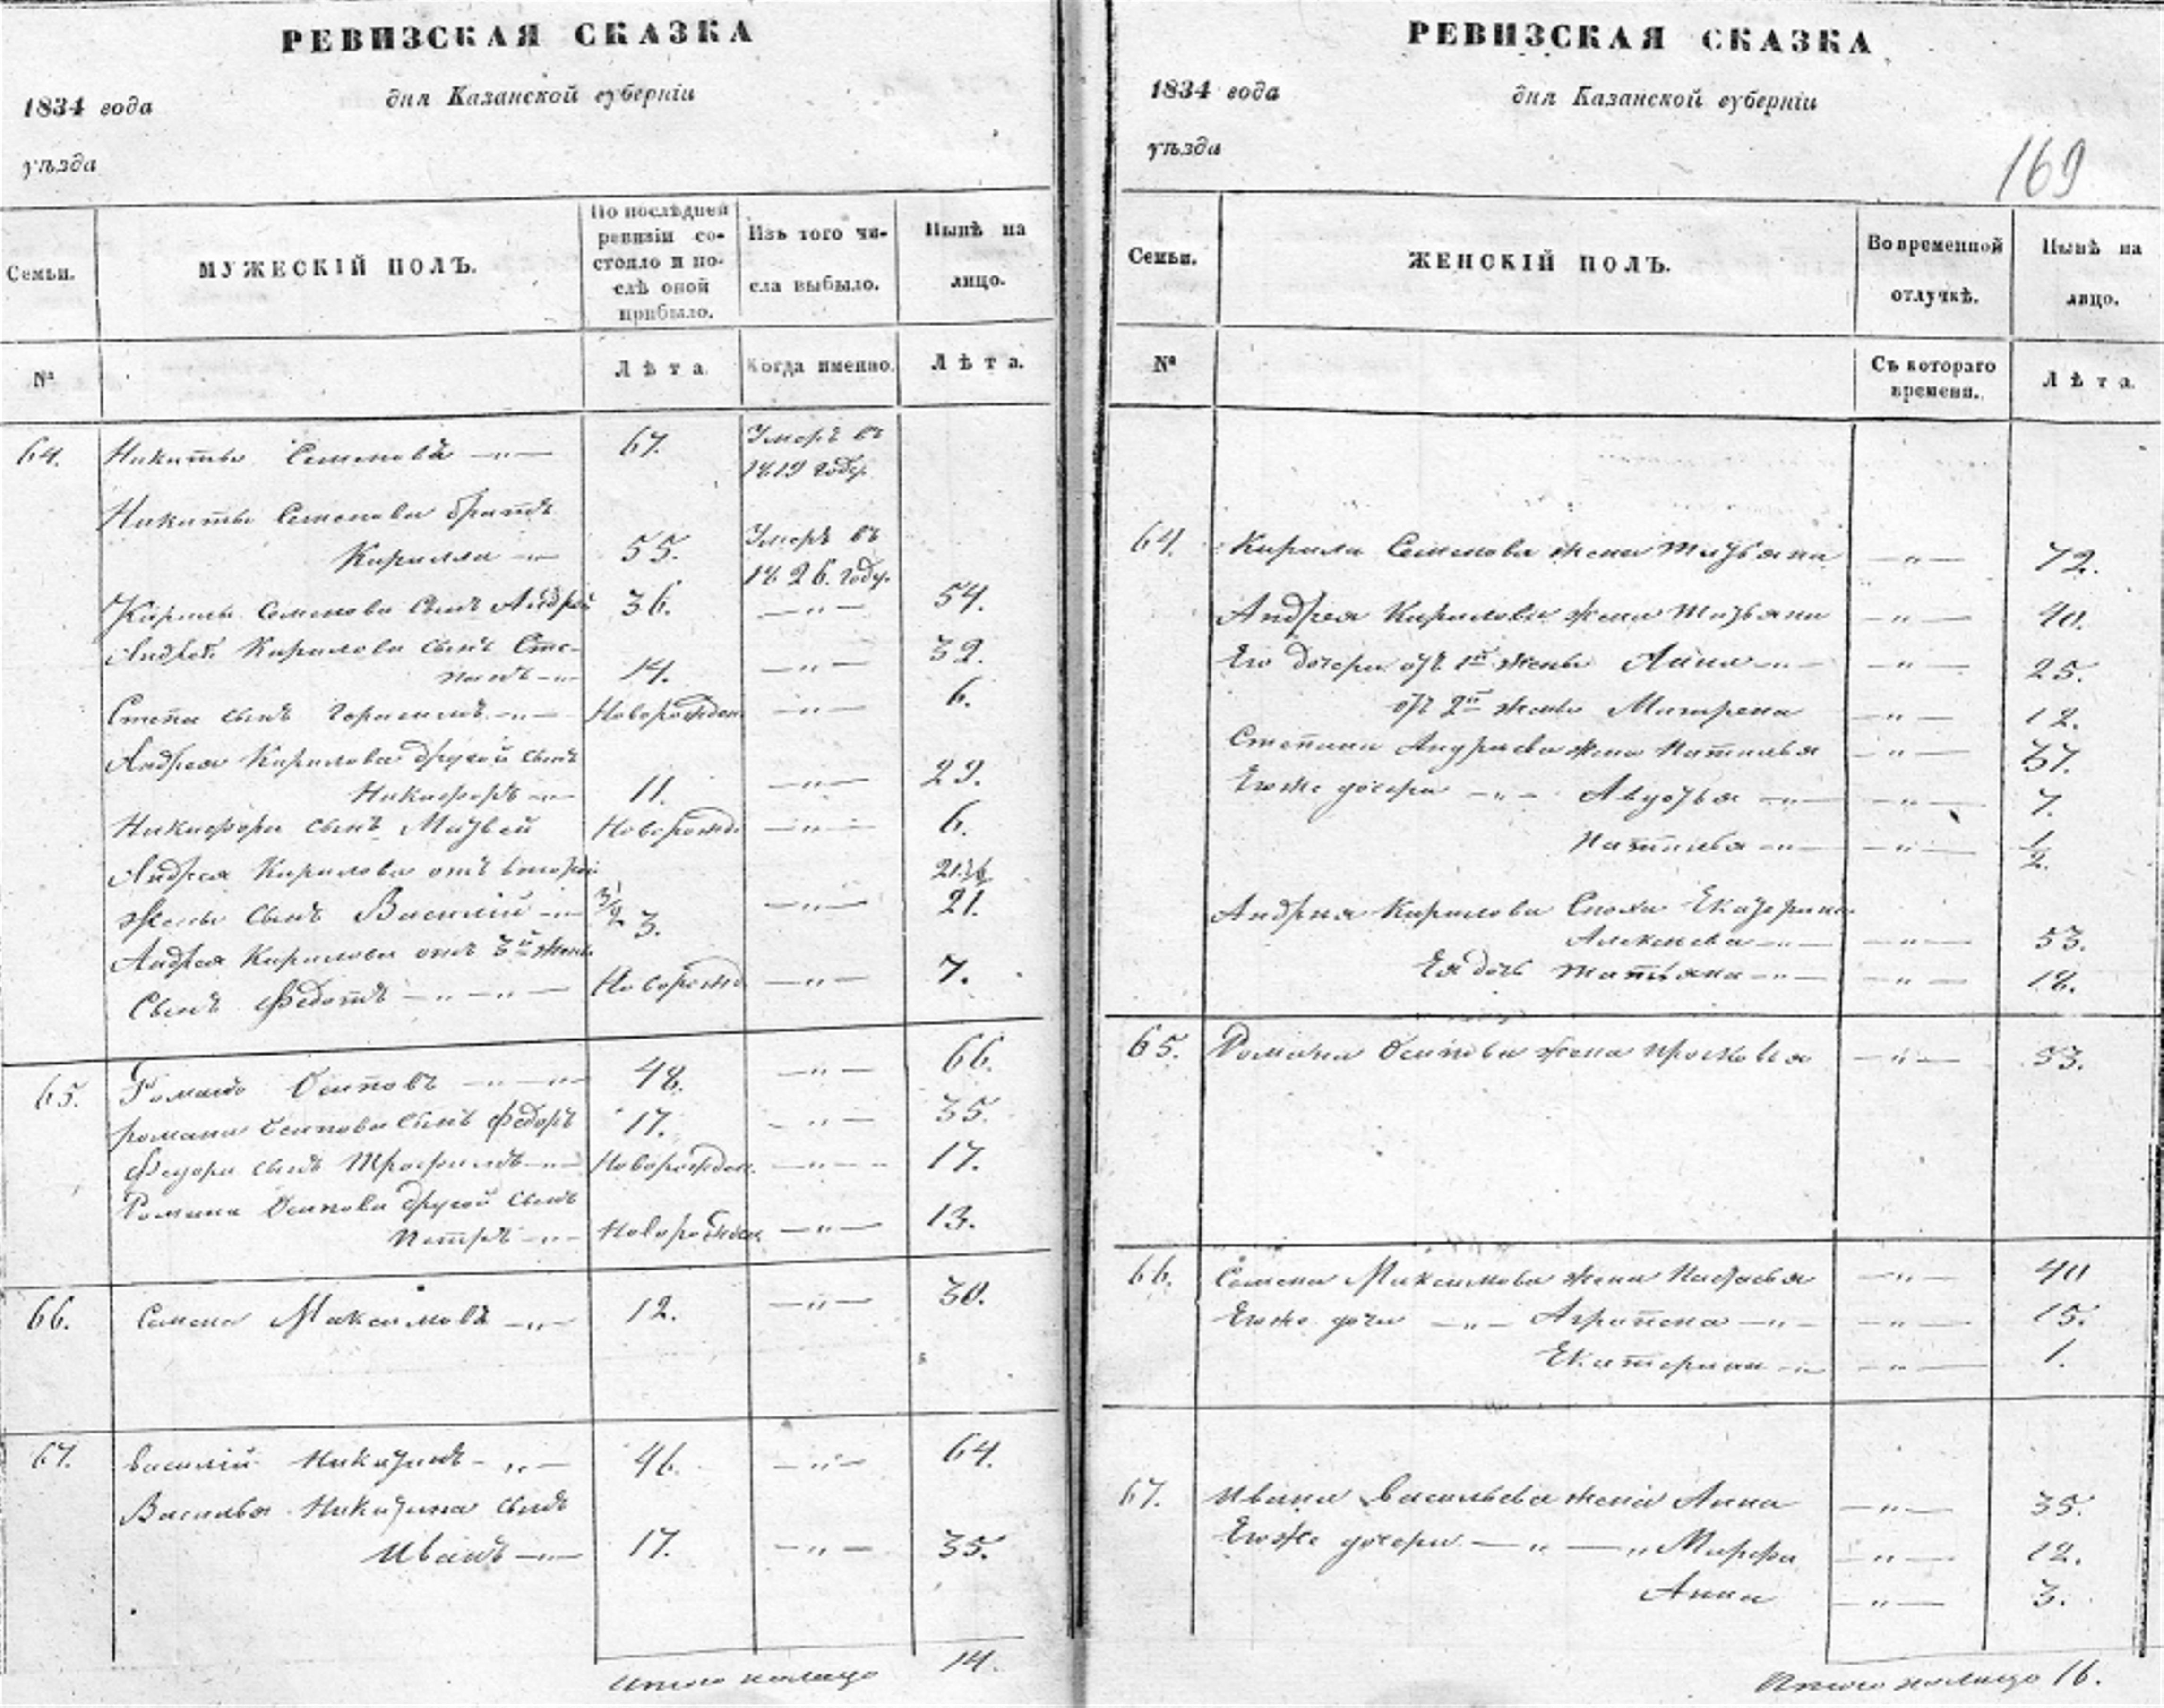 РЕВИЗСКАЯ СКАЗКА
1834 года
дня Казанской губерніи
уѣзда
Семьи.
МУЖЕСКІЙ ПОЛЪ.
По послѣдней ревизіи состояло и послѣ оной прибыло.
Изъ того числа выбыло.
Нынѣ на лицо.
№
Лѣта.
Когда именно.
Лѣта.
64. Никиты Семеновъ —"— 67. Умеръ въ
1819 году
Никиты Семенова братъ
Кирилла —"— 55. Умеръ въ
1826. году.
Кирилы Семенова сынъ Андрей 36. —"— 54.
Андрея Кирилова сынъ Сте-
панъ —"— 14. —"— 32.
Степана сынъ Герасимъ —"— Новорожден. —"— 6.
Андрея Кирилова другой сынъ
Никифоръ —"— 11. —"— 29.
Никифора сынъ Матвей Новорожд. —"— 6.
Андрея Кирилова отъ второй
жены сынъ Василий —"— 3. —"— 21.
Андрея Кирилова отъ 3й жены
Сынъ Федотъ —"—"— Новорожд —"— 7.
65. Романъ Осиповъ —"— 48. —"— 66.
романа Осипова сынъ Федоръ 17. —"— 35.
Федора сынъ Трофимъ —"— Новорожден. —"— 17.
Романа Осипова другой сынъ
Петръ —"— Новорожден. —"— 13.
66. Семенъ Максимовъ —"— 12. —"— 30.
67. Василий Никитинъ —"— 46. —"— 64.
Василья Никитина сынъ
Иванъ —"— 17. —"— 35.
Итого налицо 14.
РЕВИЗСКАЯ СКАЗКА
1834 года
дня Казанской губерніи
уѣзда
169
Семьи.
ЖЕНСКІЙ ПОЛЪ.
Во временной отлучкѣ.
Нынѣ на лицо.
№
Съ котораго времени.
Лѣта.
64. Кирила Семенова жена Татьяна —"— 72.
Андрея Кирилова жена Татьяна —"— 40.
Его дочери отъ 1й жены Анна —"— —"— 25.
отъ 2й жены Матрена —"— 12.
Степана Андреева жена Наталья —"— 37.
Егоже дочери —"— Авдотья —"— —"— 7.
Наталья —"— —"— 1/2.
Андрея Кирилова сноха Екатерина
Алексеева —"— —"— 53.
Ея дочь Татьяна —"— —"— 18.
65. Романа Осипова жена Прасковья —"— 53.
66. Семена Максимова жена Наталья —"— 40
Егоже дочи —"— Аграпена —"— —"— 15.
Екатерина —"— —"— 1.
67. Ивана Васильева жена Анна —"— 35.
Егоже дочери —"—"— Марфа —"— 12.
Анна —"— 3.
Итого налицо 16.